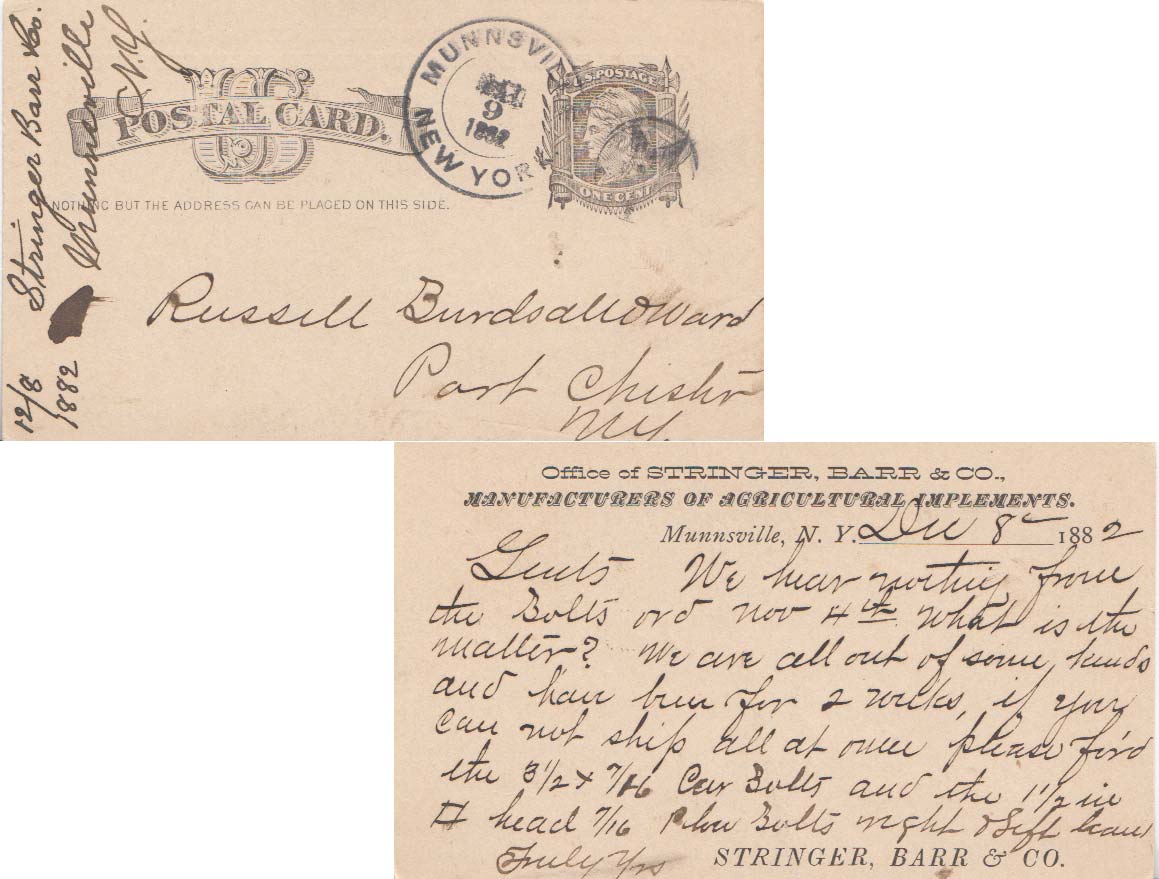 Stringer Barr & Co.
Munnsville
N.Y.
12/8
1882
U S
POSTAL CARD.
NOTHING BUT THE ADDRESS CAN BE PLACED ON THIS SIDE.
MUNNSVILLE
9
1882
NEW YORK
U.S. POSTAGE
ONE CENT
Russell Burdsall & Ward
Port Chister
N.Y.
Office of STRINGER, BARR & CO.,
MANUFACTURERS OF AGRICULTURAL IMPLEMENTS.
Munnsville, N. Y. Dec 8 1882
Gents We hear nothing from
the Bolts ord Nov 4th What is the
matter? We are all out of some kinds
and have been for 2 weeks, if you
can not ship all at once please for'd
the 3 1/2 x 7/16 Car Bolts and the 1 1/2 in
head 7/16 Plow Bolts right & Left hand
Truly Yrs STRINGER, BARR & CO.